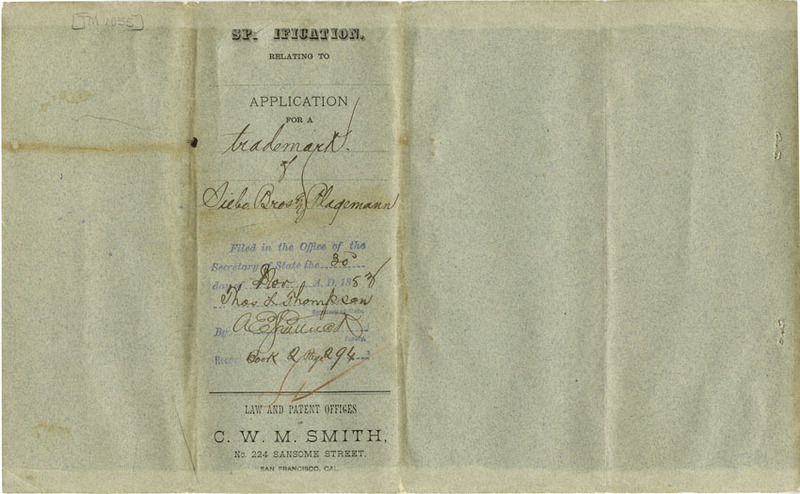 [TM 1055]
SP. IFICATION.
RELATING TO
APPLICATION
FOR A
trademark.
of
Siebe Bros & Plagemann
Filed in the Office of the
Secretary of State the 30
day of Nov. A.D. 1883
Thos L Thompson
Secretary of State
By
Book 2 Page 294
LAW AND PATENT OFFICES
C. W. M. SMITH,
No. 224 SANSOME STREET,
SAN FRANCISCO, CAL.